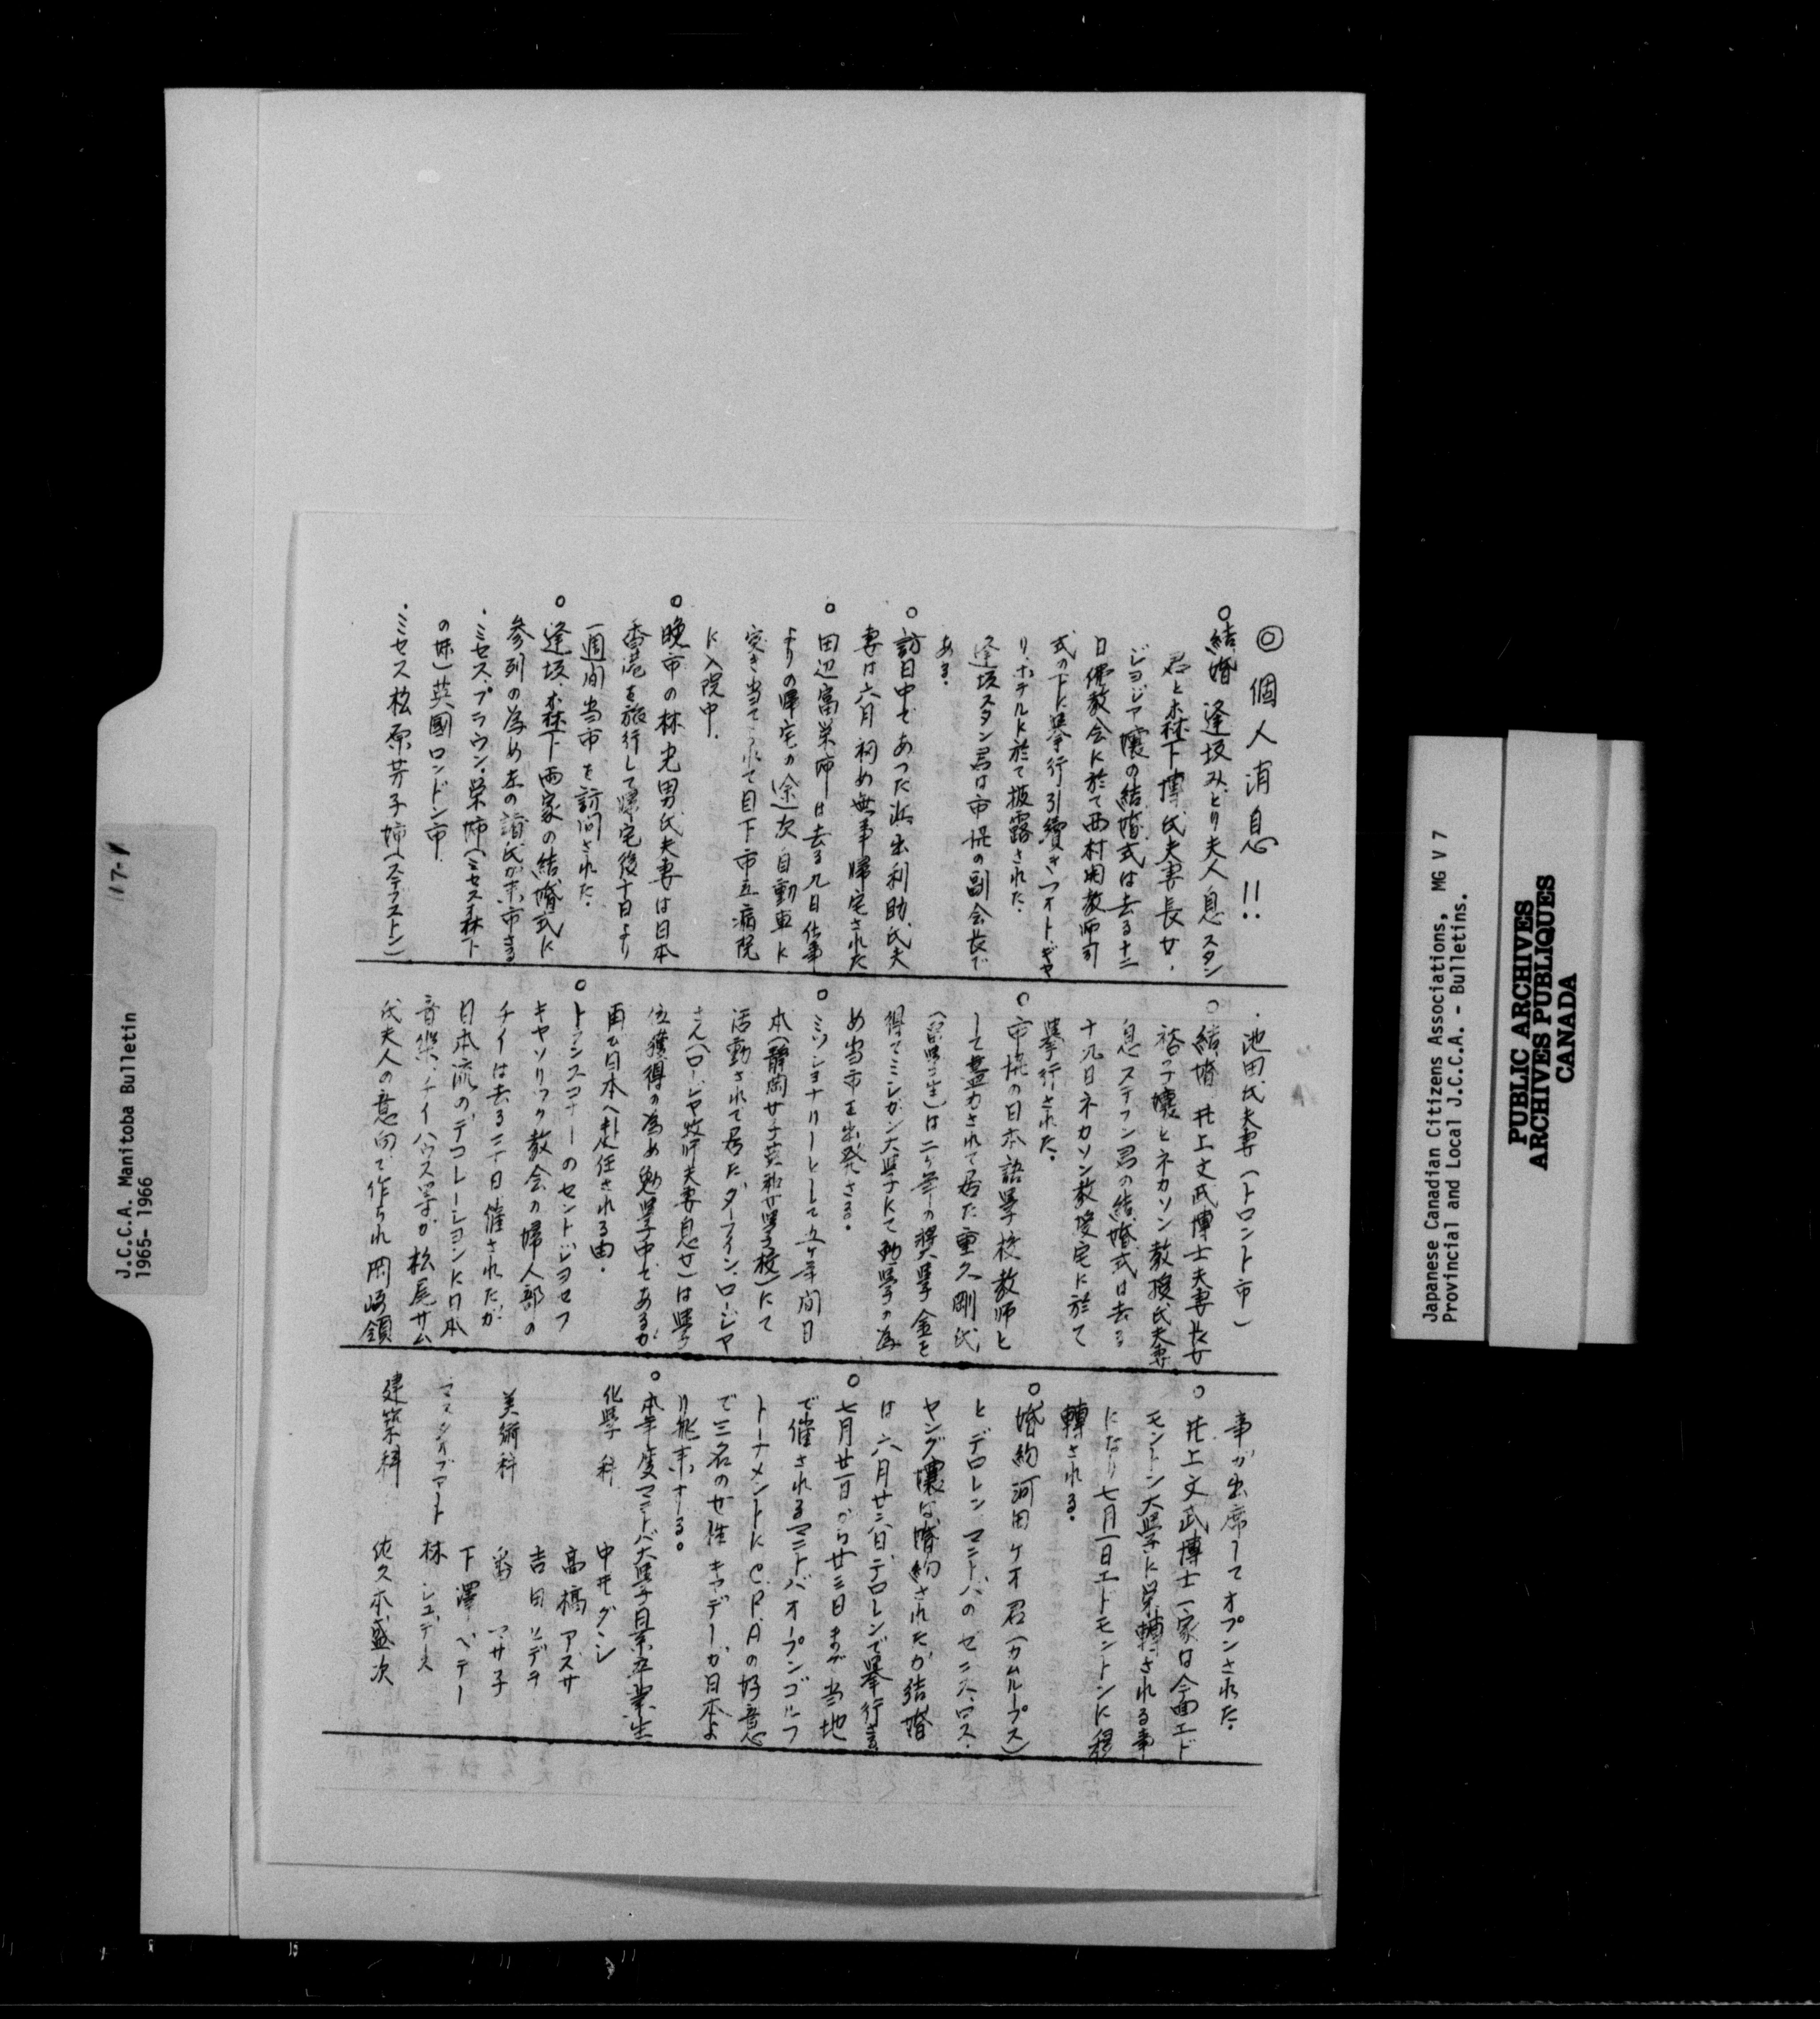 ◎個人消息!!
○結婚 逢坂みどり夫人息スタン
君と森下博氏夫妻長女、
ジヨジア孃の結婚式は去る十二
日佛教会に於て西村開教師司
式の下に挙行引續きフオト.ギヤ
リ.ホテルに於て披露された.
逢坂スタン君は市協の副会長で
ある.
○訪日中であつた浜出利助氏夫
妻は六月初め無事帰宅された
○田辺富栄姉は去る九日仕事
よりの帰宅の途次自動車に
突き当てられて目下市立病院
に入院中.
○晩市の林光男氏夫妻は日本
香港を旅行して帰宅後十日より
一週間当市を訪问された.
○逢坂.森下両家の結婚式に
参列の為め左の諸氏が来市さる
・ミセス.ブラウン.栄姉(ミセス森下
の妹)英國ロンドン市
・ミセス松原芳子姉(ステフストン)
・池田氏夫妻(トロント市)
○結婚 井上文武博士夫妻長女
裕子孃とネカソン教授氏夫妻
息ステフン君の結婚式は去る
十九日ネカソン教授宅に於て
挙行された.
○市協の日本語學校教師と
して盡力されて居た重久剛氏
(留学生)は二ヶ年の奨學金を
得てミシガン大學にて勉學の為
め当市を出発さる.
○ミツシヨナリーとして五ケ年间日
本(静岡女子英和女學校)にて
活動されて居たダーフイン.ロージヤ
さん(ロージヤ牧师夫妻息女)は學
位獲得の為め勉學中であるが
再び日本へ赴任される由.
○トランスコナーのセント.ジヨセフ
キヤソリツク教会の婦人部の
チイは去る二十日催されたが
日本流のデコレーシヨンに日本
音楽.チイハウス等が松尾サム
氏夫人の意向で作られ岡崎領
事が出席してオプンされた.
○井上文武博士一家は今回エド
モントン大學に栄轉される事
になり七月一日エドモントンに移
轉される.
○婚約 河田ケオ君(カムループス)
とデロレン マニトバのゼニス.ロス.
ヤング孃は婚約されたが結婚
は六月廿六日デロレンで挙行さる
○七月廿一日から廿三日まで当地
で催されるマニトバオープンゴルフ
トーナメントにC.P.Aの好意
で三名の女性キアデーが日本よ
り飛来する。
○本年度マニトバ大學日系卒業生
化學科 中井ダン
高橋アズサ
吉田ヒデオ
美術科 マサ子
下澤 ベテー
林 ジユデース
建築科 佐久本盛次
J.C.C.A. Manitoba Bulletin
1965- 1966
117-1
Japanese Canadian Citizens Associations, MG V 7
Provincial and Local J.C.C.A. - Bulletins.
PUBLIC ARCHIVES
ARCHIVES PUBLIQUES
CANADA